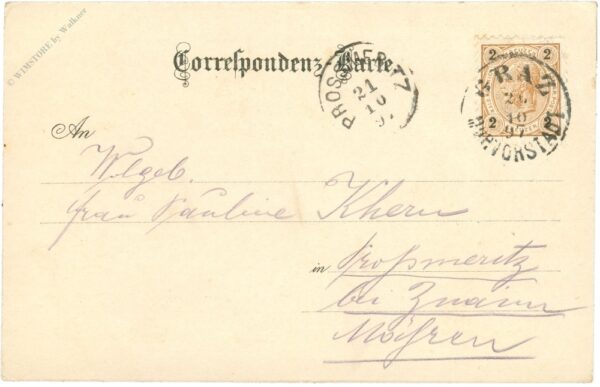 © WIMSTORE by Walkner
Correspondenz-Karte
PROSSMERITZ
21
10
97
2 2
2 2
GRAZ
10
97
MURVORSTADT
An
Wlgeb.
Frau Pauline Khern
in Proßmeritz
bei Znaim
Mähren